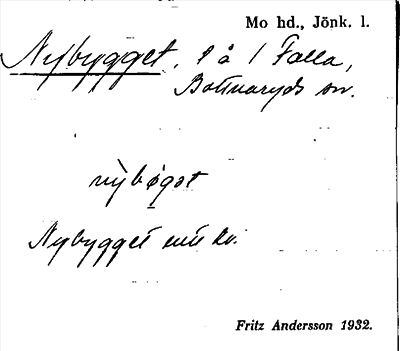 Mo hd., Jönk. l.
Nybygget, l å 1 Falla,
Bottnaryds sn.
nỳbøgət
Nybygget
Fritz Andersson 1932.